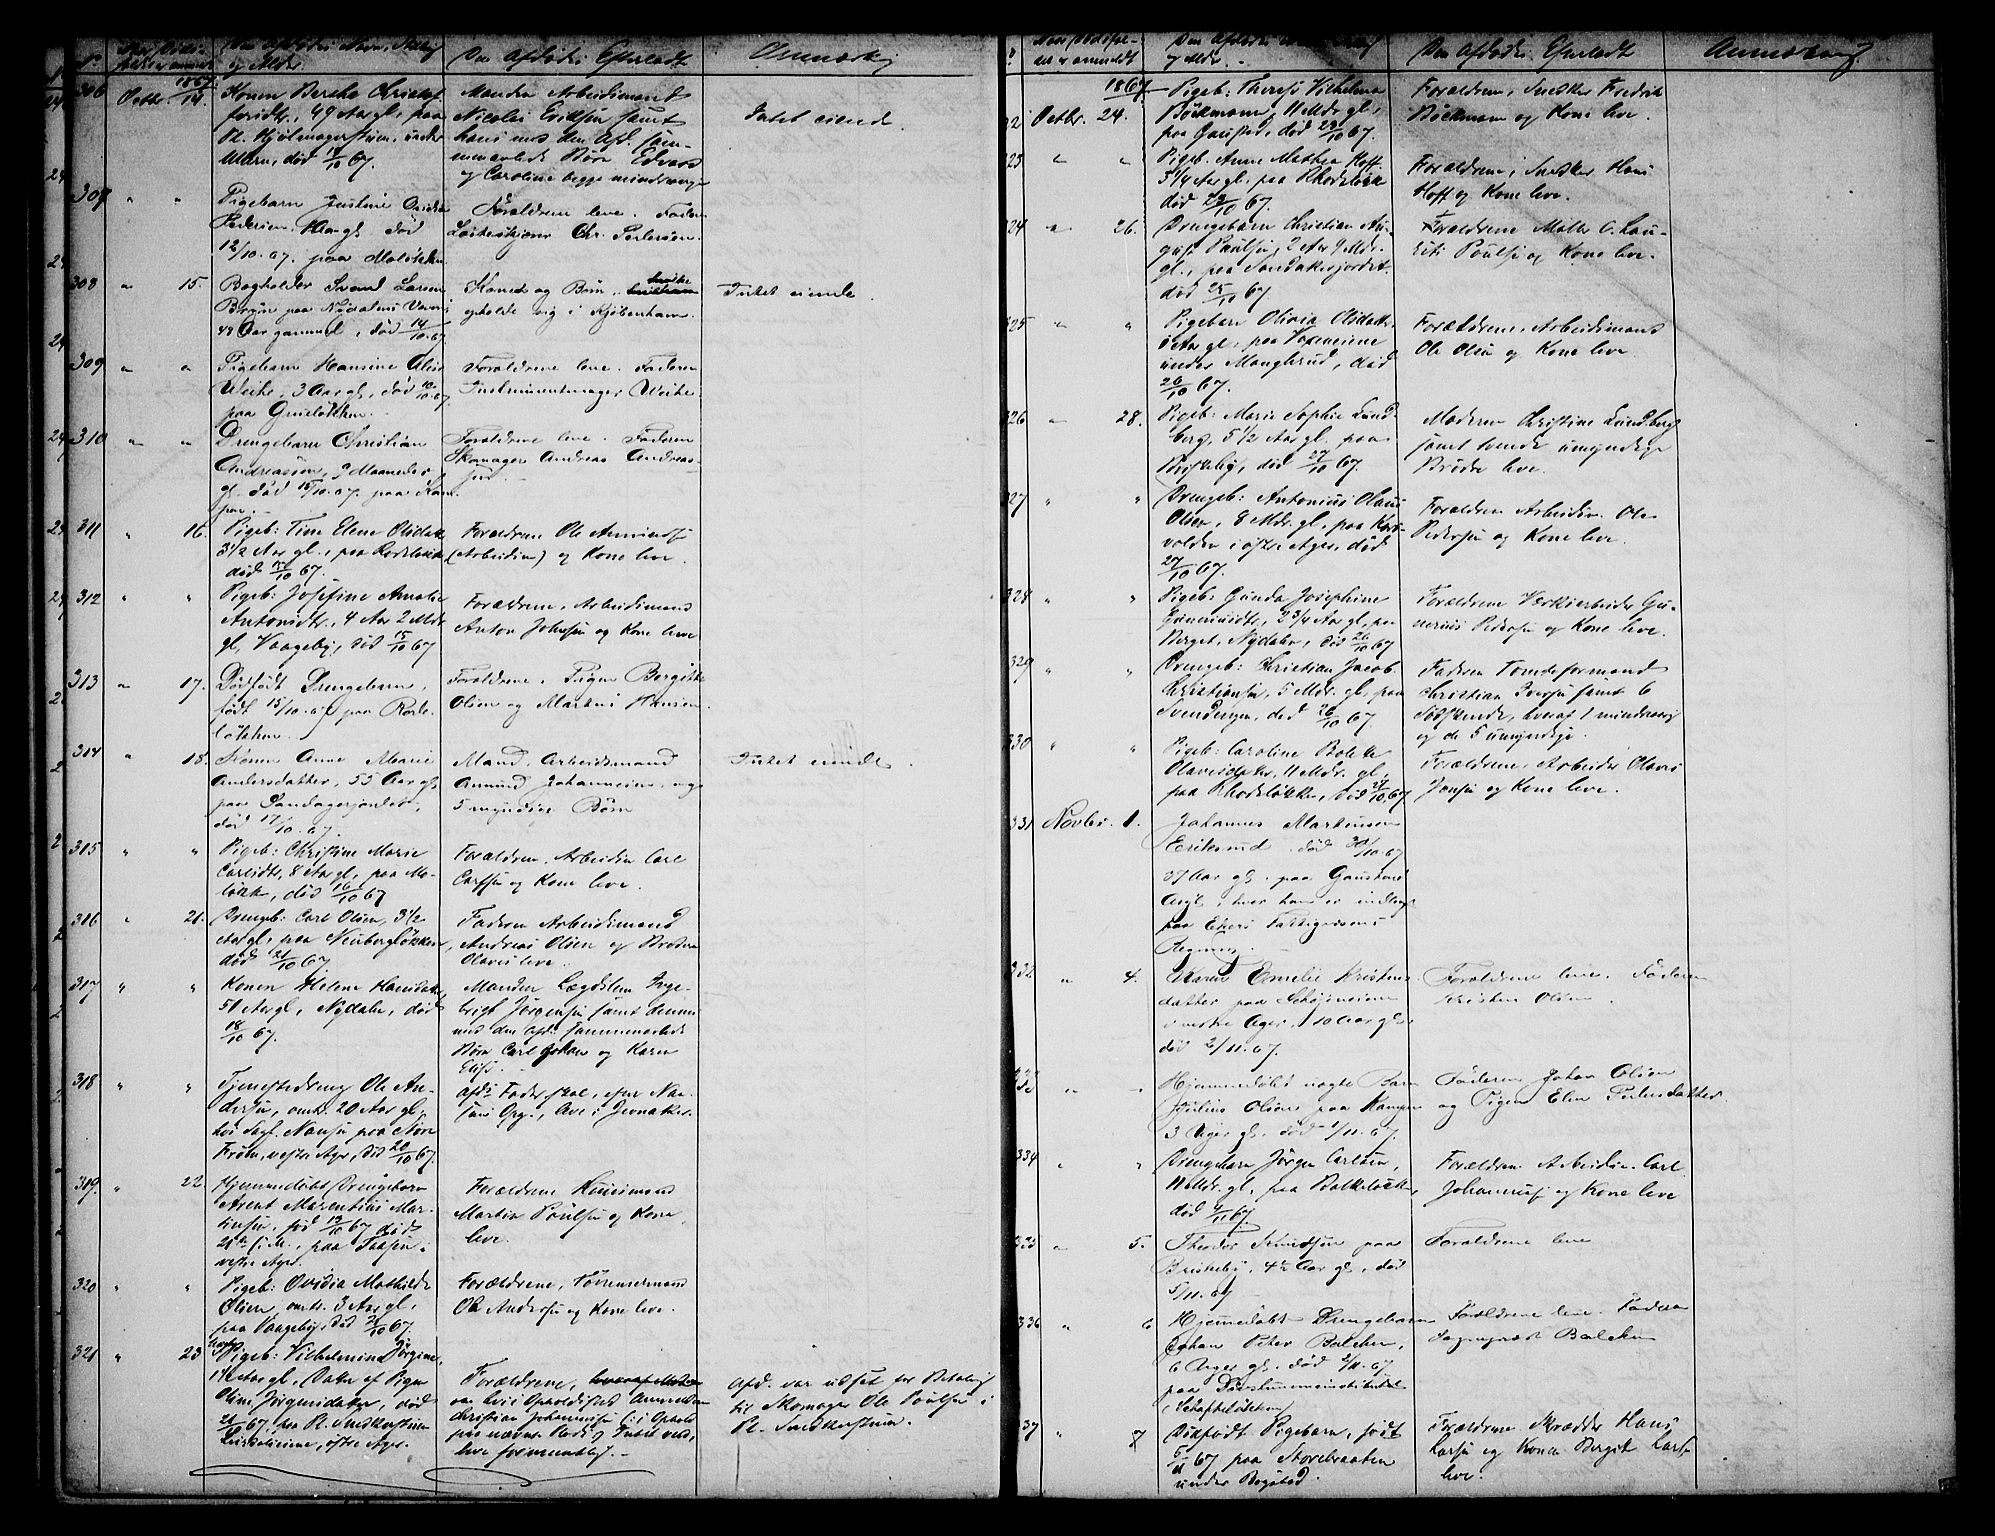 No. Naar Dødsfaldet er anmeldt Den Afdødes Navn, Stilling og Alder. Den Afdødes Efterladte Anmærkning
306 Octbr. 1867 14.
Konen Berthe Christof-
feridtr., 49 Aar gl., paa
Pl. Hjulmagerstuen, under
død 12/10 67.
Manden Arbeidsmand
Nicolai Eriksen samt
hans med den Afd. sam-
menavlede Børn Edvard
og Caroline begge mindreaarige
Intet eiende.
307 " "
Pigebarn Justine
Pedersen død
12/10.67. paa Møløkken
Forældrene leve. Faderen
Chr. Pedersen.
308 " 15.
Bogholder Svend Larsen
paa Nydalens
48 Aar gammel, død 14/10.67.
Kone og Børn, hvilke
opholde sig i Kjøbenhavn.
Intet eiende.
309 " "
Pigebarn Hansine
Weihe, 3 Aar gl, død 10/10.67
paa Grüneløkken.
Forældrene leve. Faderen
Instrumentmager Weihe.
310 " "
Drengebarn Christian
Andreassen, 9 Maaneder
gl. død 15/10.67. paa Kam-
pen.
Forældrene leve. Faderen
Skomager Andreas Andreas-
sen.
311 " 16.
Pigeb: Tine Elene Olsdatter
3 1/2 Aar gl., paa Rodeløkken
død 15/10 67.
Forældrene Ole Amundsen
(Arbeidsm) og Kone leve.
312 " "
Pigeb: Josefine Amalie
Antonidtr., 4 Aar 2 Mdr
gl, Vaageby, død 15/10 67
Forældrene, Arbeidsmand
Anton Johnsen og Kone leve
313 " 17.
Dødfødt Drengebarn,
født 15/10.67 paa Rode-
løkken.
Forældrene, Pigen Bergitte
Olsen og Martin Hansen.
314 " 18.
Konen Anne Marie
Andersdatter, 55 Aar gl,
paa Sandagerjordet,
død 17/10.67.
Mand, Arbeidsmand
Amund Johannesen, og
5 myndige Børn
Intet eiende.
315 " "
Pigeb: Christine Marie
Carlsdtr, 8 Aar gl, paa Mø-
løkk, død 16/10 67
Forældrene. Arbeidsm Carl
Carlsen og Kone leve.
316 " 21.
Drengeb: Carl Olsen, 3 1/2
Aar gl, paa Neubergløkken,
død 21/10 67.
Faderen Arbeidsmand
Andreas Olsen og Broderen
Olavis leve.
317 " "
Konen Helene Hansdatter
51 Aar gl, Nydalen, død
18/10 67.
Manden Lægdslem Inge-
brigt Jørgensen samt dennes
med den afdøde sammenavlede
Børn Carl Johan og Karen
Elise.
318 " "
Tjenestedreng Ole An-
dersen, omtr. 20 Aar gl,
hos Sagf. Nansen paa Store
Frøen, vestre Aker, død 20/10 67.
Afds Fader skal, efter Nan-
sens Opg., leve i Jevnaker.
319. " 22
Hjemmedøbt Drengebarn
Arent Marentius Mar-
tinsen, født 19/10 67 død
21de s. M., paa Taasen i
vestre Aker.
Forældrene Huusmand
Martin Poulsen og Kone
leve.
320 " "
Pigeb: Ovidia Mathilde
Olsen, omtr. 3 Aar gl,
paa Vaagebye, død 21/10 67.
Forældrene,
Ole Andersen og Kone leve.
321 " 23
Pigeb: Vilhelmine Jørgine,
Aar gl, Datter af Pigen
Oline Jørgensdatter, død
21/10 67, paa Pl. Snekkerstuen
østre Aker.
Forældrene,
Christian Johannesen
leve formentlig.
Afd. var udsat for Betaling
til Skomager Ole Poulsen i
Pl. Snekkerstuen.
Naar Dødsfaldet er anmeldt Den Afdødes Navn, Stilling og Alder. Den Afdødes Efterladte Anmærkning
22 1867 Octbr. 24.
Pigeb: Therese Vilhelmine
Böckmann, 11 Mdr. gl,
paa Gaustad, død 23/10 67.
Forældrene, Snekker Fredrik
Böckmann og Kone leve.
23 " "
Pigeb. Anne Mathea Hoff
3 1/4 Aar gl. paa Rhodeløkk
død 22/10 67.
Forældrene, Snekker Hans
Hoff og Kone leve.
24 " 26.
Drengebarn Christian Au-
gust Paulsen, 2 Aar 9 Mdr.
gl., paa Sandakerjordet.
død 25/10 67
Forældrene Maler C. Lau-
rits Poulsen og Kone leve.
325 " "
Pigebarn Olivia Olsdatter,
6 Aar gl., paa Voxeneiene
under Manglerud, død
26/10 67.
Forældrene, Arbeidsmand
Ole Olsen og Kone leve
326 " 28.
Pigeb: Marie Sophie Lund-
berg, 5 1/2 Aar gl. paa
Briskeby, død 27/10 67.
Moderen Christine Lundberg
samt tvende umyndige
Brødre leve.
327 " "
Drengeb: Antonius Olaus
Olsen, 8 Mdr. gl, paa Kors-
volden i østre Aker, død
27/10 67.
Forældrene Arbeidsm. Ole
Pedersen og Kone leve.
328 " "
Pigeb: Gunda Josephine
Gunerusdtr, 2 3/4 Aar gl, paa
Berget, Nydalen, død 26/10 67
Forældrene Værksarbeider Gu-
nerius Pedersen og Kone leve.
329 " "
Drengeb: Christian Jacob
Christiansen, 5 Mdr. gl, paa
Svendengen, død 26/10 67.
Faderen Tomteformand
Christian Iversen samt 6
Sødskende, hvoraf 1 mindreaarig
og de 5 umyndige.
330 " "
Pigeb: Caroline Bolette
Olavesdatter, 11 Mdr. gl,
paa Rhodeløkken, død 27/10.67.
Forældrene, Arbeider Olaves
Jensen og Kone leve.
331 Novbr. 1.
Johannes Martinsen
Eriksrud. død 30/10.67
27 Aar gl. paa Gaustad
Asyl, hvor han er indlagt
paa Ekers Fattigvesens
Regning.
332 " 4.
Karen Emelie Kristens-
datter paa
i vestre Aker, 10 Aar gl.
død 2/11.67.
Forældrene leve. Faderen
Kristen Olsen.
333 " "
Hjemmedøbt uægte Barn
Julius Olsen paa Kampen
3 Uger gl. død 1/11.67.
Faderen Johan Olsen
og Pigen Elen Pedersdatter.
334 " "
Drengebarn Jørgen Carlsen,
11 Mdr. gl, paa Balkeløkken,
død 4/11 67.
Forældrene Arbeidsm. Carl
Johannesen og Kone leve
335 " 5.
Theodor Knudsen paa
Briskeby, 4 1/2 Aar gl, død
5/11.67
Forældrene leve
336 " 6
Hjemmedøbt Drengebarn
Johan Peter Balchen,
6 Uger gl. død 2/11.67
paa Døvstummeinstitutet
(Schafteløkken)
Forældrene leve. Faderen
Sogneprest Balchen
337 " 7
Dødfødt Pigebarn, født
5/11 67 paa Storebraaten
under Bogstad.
Forældrene Skrædder Hans
Larsen og Konen Bergit Lars
leve.